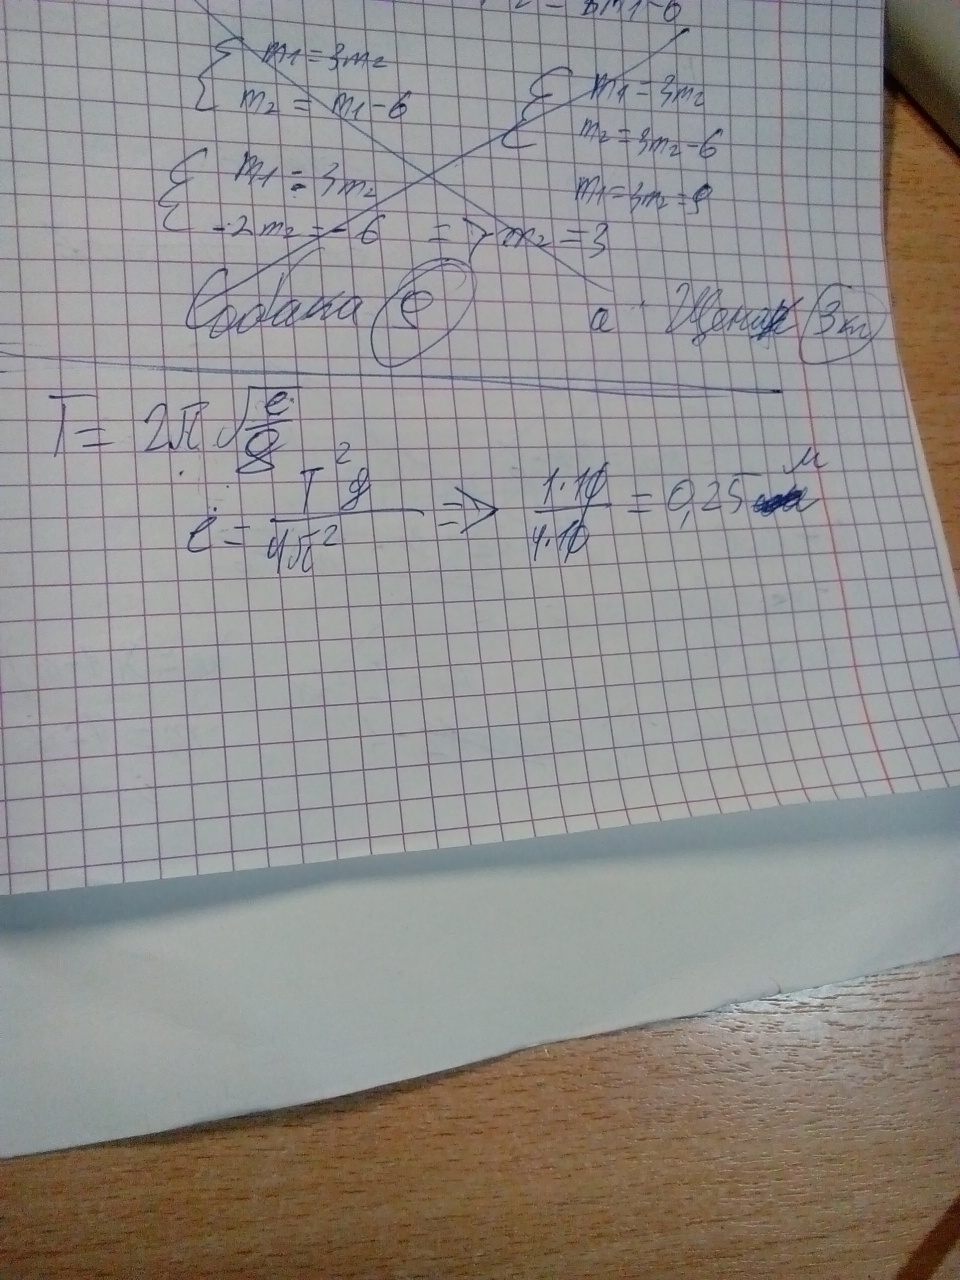 { m₁ = 3m₂
m₂ = m₁ - 6
{ m₁ = 3m₂
m₂ = 3m₂ - 6
m₁ = 3m₂ = 9
{ m₁ = 3m₂
-2m₂ = -6 => m₂ = 3
Собака 9 а Щенок 3 кг
T = 2π√(l/g)
l = T²g / 4π² => 1·10 / 4·10 = 0,25 м